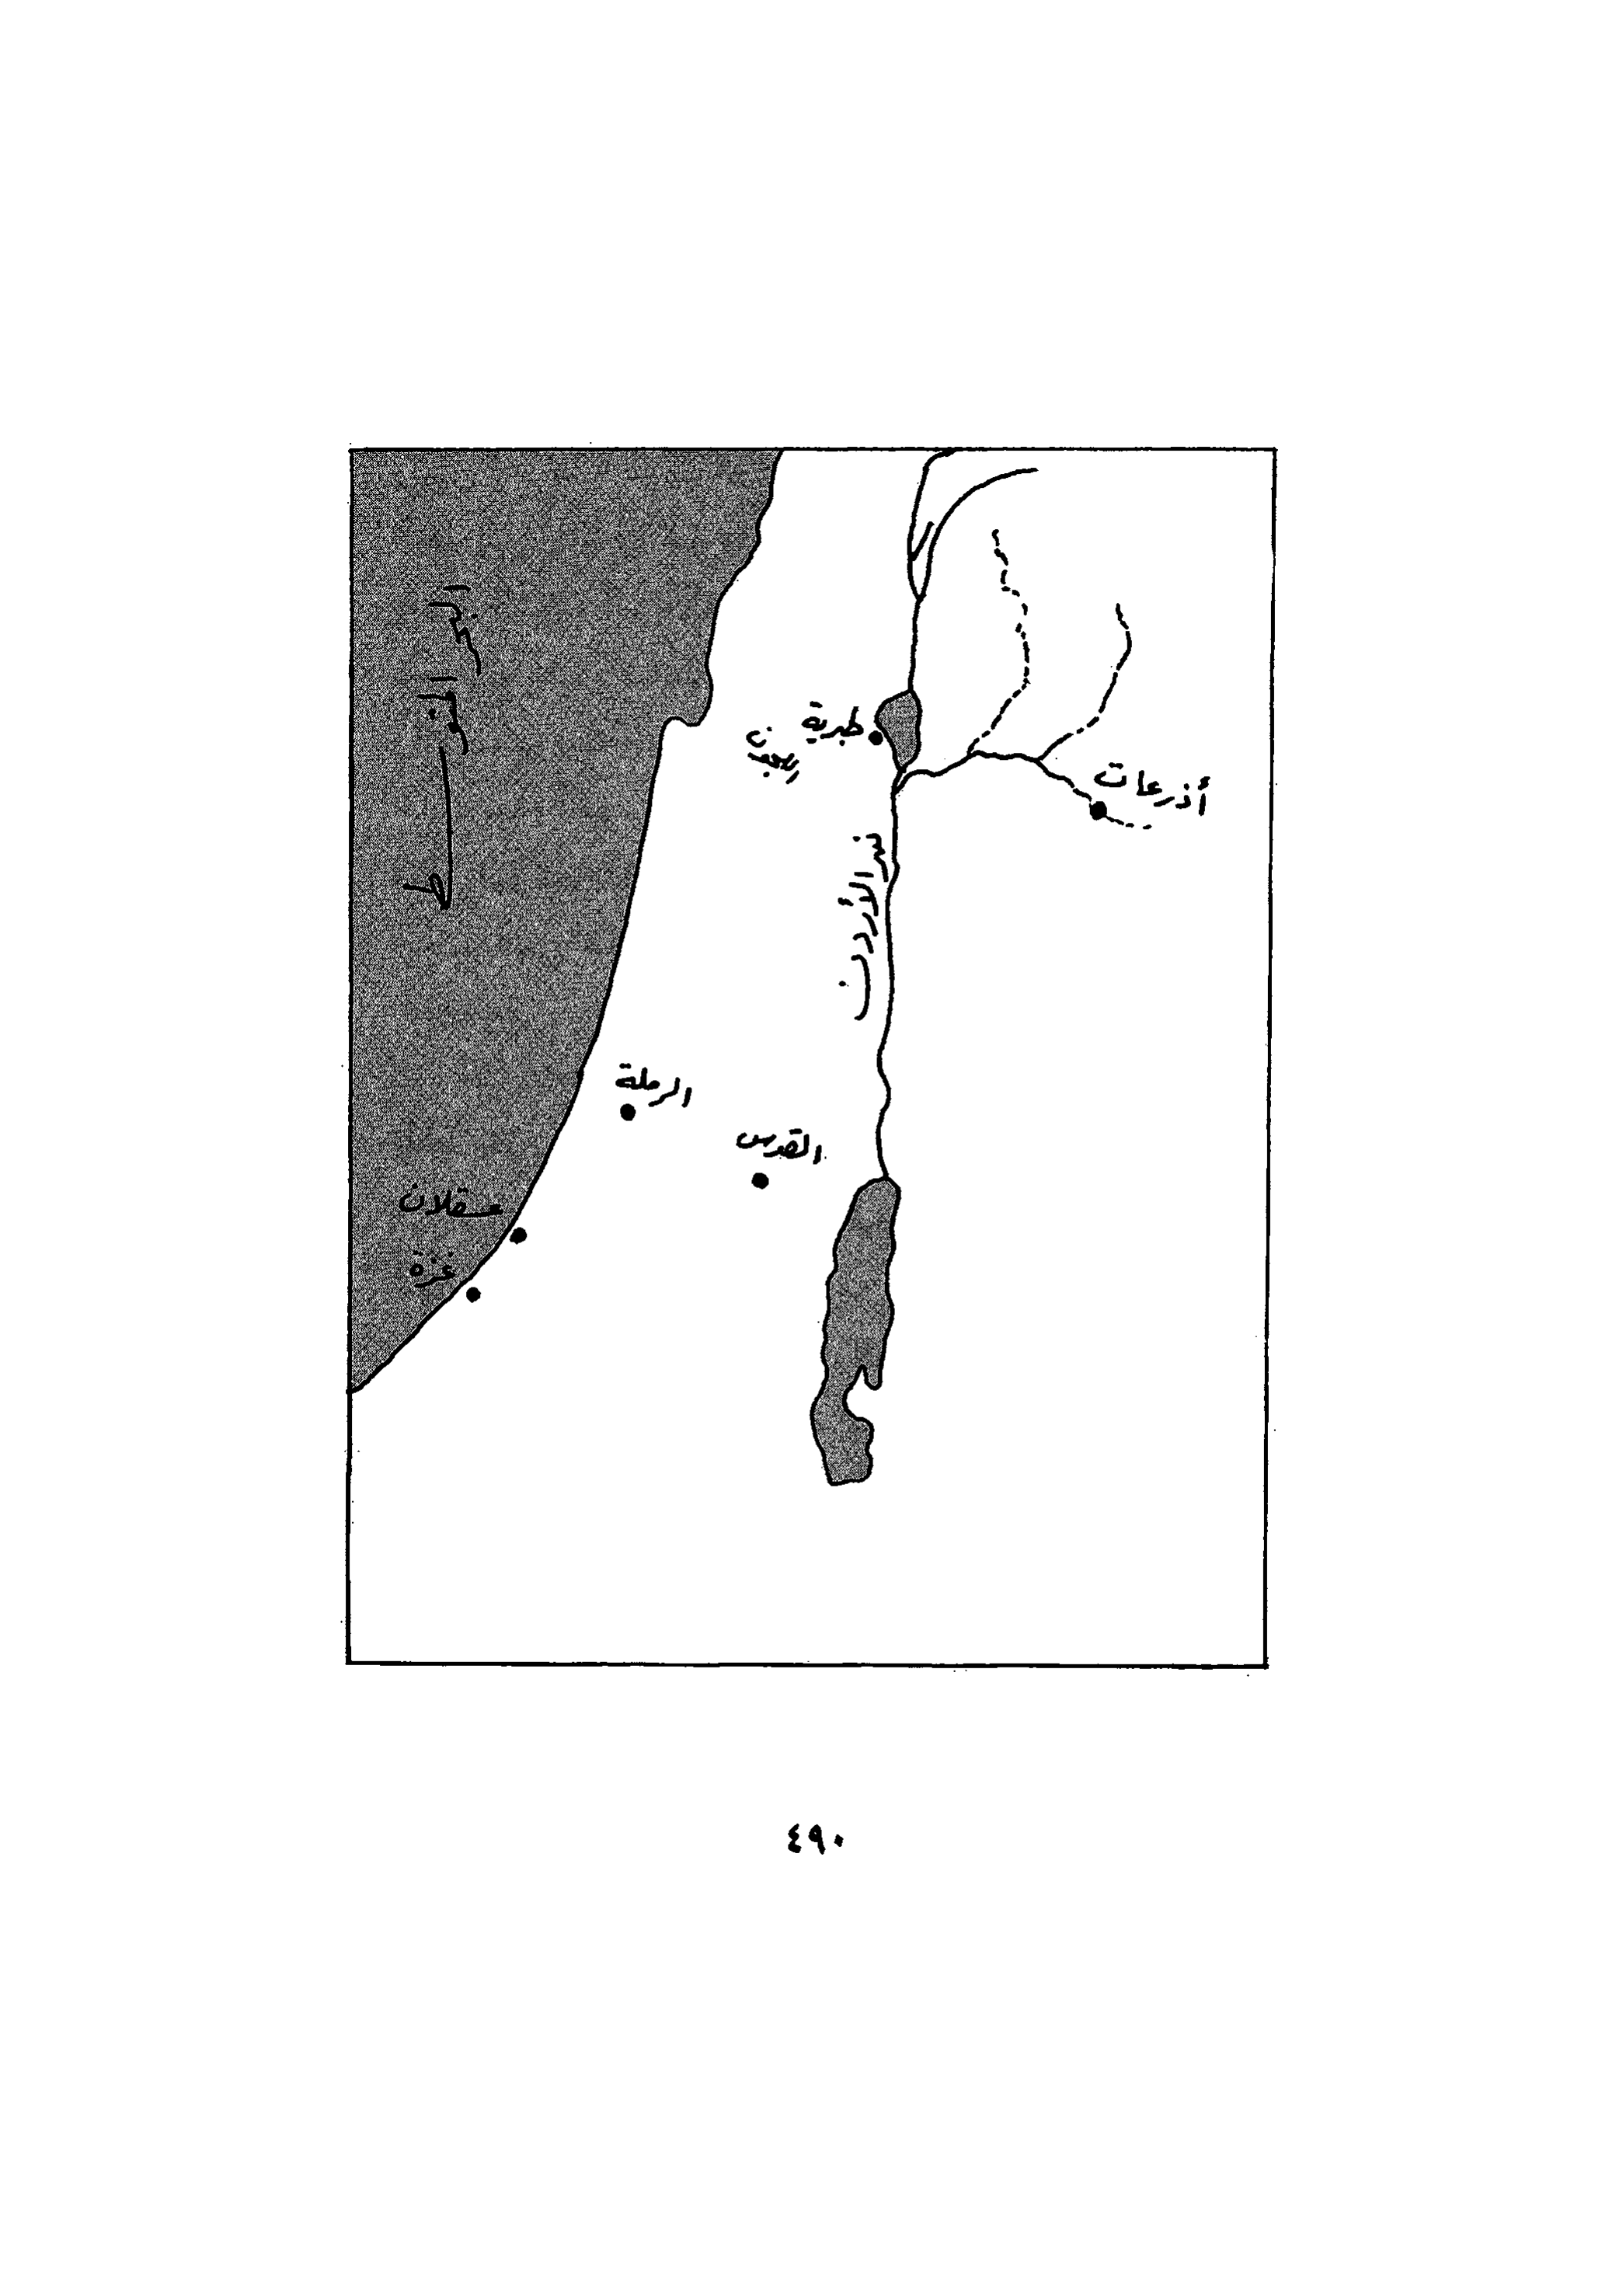 البحر المتوسط
طبرية
اللجون
أذرعات
نهر الأردن
الرملة
القدس
عسقلان
غزة
٤٩٠